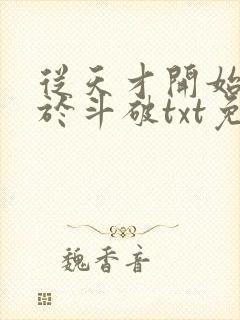 從天才開始
於斗破txt免
魏香音